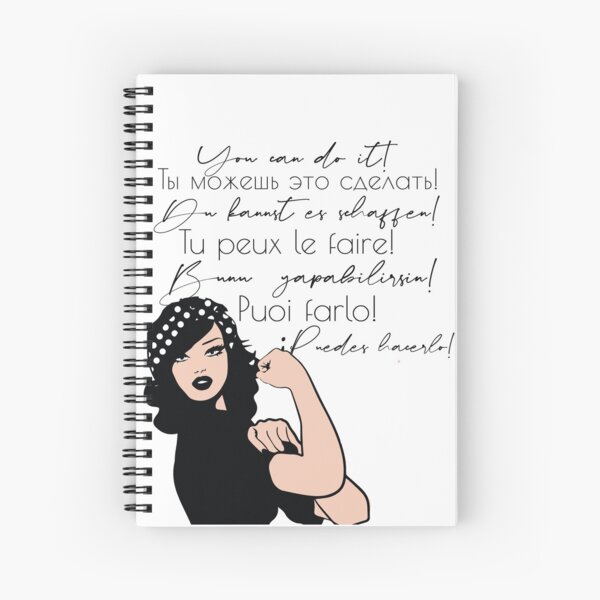 You can do it!
Ты можешь это сделать!
Du kannst es schaffen!
Tu peux le faire!
Bunu yapabilirsin!
Puoi farlo!
¡Puedes hacerlo!